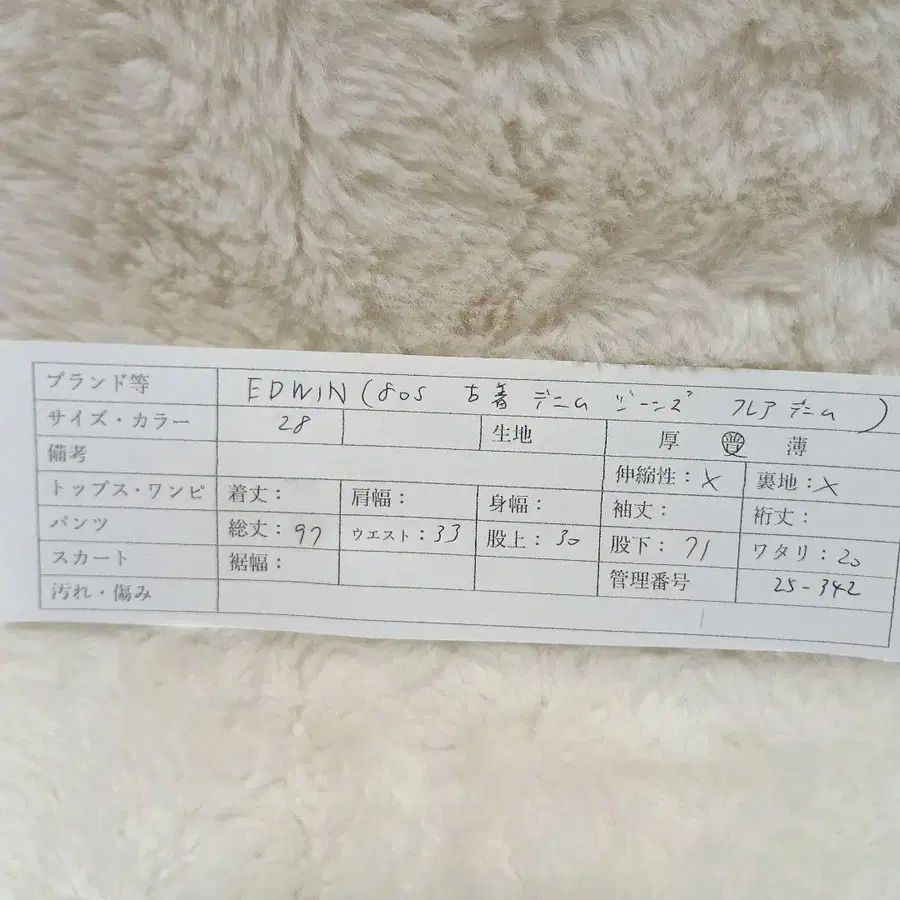 ブランド等 EDWIN (80s 古着 デニム ジーンズ フレアデニム)
サイズ・カラー 28 生地 厚 普 薄
備考 伸縮性:× 裏地:×
トップス・ワンピ 着丈: 肩幅: 身幅: 袖丈: 裄丈:
パンツ 総丈:97 ウエスト:33 股上:30 股下:71 ワタリ:20
スカート 裾幅: 管理番号 25-342
汚れ・傷み